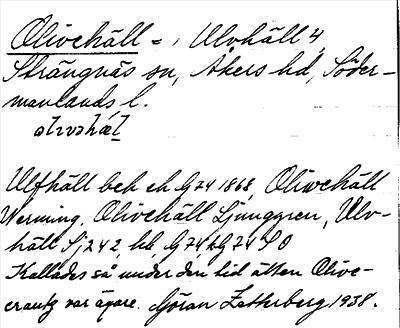 Olivehäll = , Ulvhäll 4,
Strängnäs sn, Åkers hd, Söder-
manlands l.
olivəhäl
Ulfhäll bek ek G 74 1868, Olivehäll
Werming. Olivehäll Ljunggren, Ulv-
häll Sj 242, hk, G 74, kG 74 SO
Kallades så under den tid ätten Olive-
crantz var ägare. Göran Zetterberg 1938.